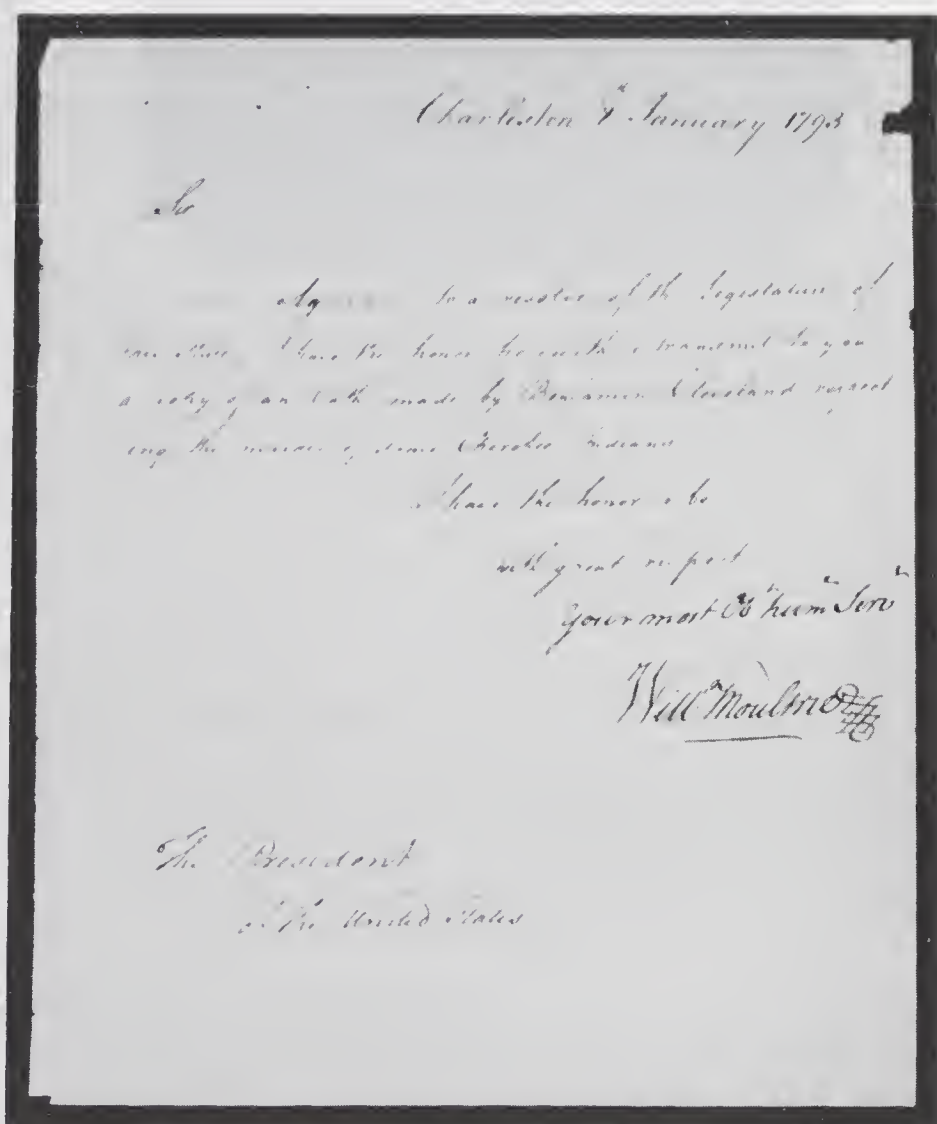 Charleston January 1793
Sir
to a resolve of the Legislature of
I have the honor herewith transmit to you
a copy of an Oath made by Benjamin Cleveland respect
ing the murder of some Cherokee Indians
I have the honor to be
with great respect
Your most Obt humle Servt
Willm Moultrie
The President
of the United States